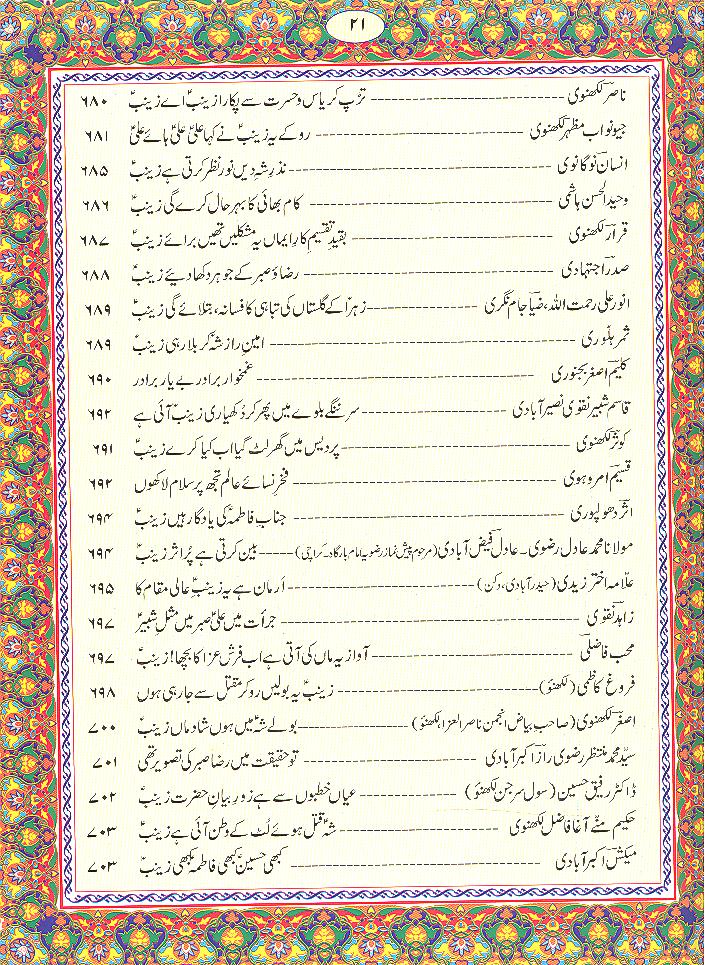 ۲۱
ناصر لکھنوی ---------- تڑپ کر یاس و حسرت سے پکارا زینبؑ اے زینبؑ ۶۸۰
جیو نواب مظہر لکھنوی ---------- رو کے یہ زینبؑ نے کہا علیؑ علیؑ ہائے علیؑ ۶۸۱
انسان نوگانوی ---------- نذرِ شہِ دیں نورِ نظر کرتی ہے زینبؑ ۶۸۵
وحید الحسن ہاشمی ---------- کام بھائی کا بہر حال کرے گی زینبؑ ۶۸۶
قرار لکھنوی ---------- بقیدِ تقسیم کارِ ایماں یہ مشکلیں تھیں برائے زینبؑ ۶۸۷
صدر اجتہادی ---------- رضا و صبر کے جوہر دکھا دیے زینبؑ ۶۸۸
انور علی رحمت اللہ، ضیا جام نگری ---------- زہراؑ کے گلستاں کی تباہی کا فسانہ، بتلائے گی زینبؑ ۶۸۹
ثمر ہلّوری ---------- امینِ رازِ شہِ کربلا رہی زینبؑ ۶۸۹
کلیم اصغر بجنوری ---------- غمخوارِ برادر بے یار برادر ۶۹۰
قاسم شبیر نقوی نصیر آبادی ---------- سر ننگے بلوے میں پھر کر دُکھیاری زینبؑ آئی ہے ۶۹۲
کوثر لکھنوی ---------- پردیس میں گھر لٹ گیا اب کیا کرے زینبؑ ۶۹۱
قسیم امروہوی ---------- فخرِ نسائے عالم تجھ پر سلام لاکھوں ۶۹۲
اثر دھولپوری ---------- جنابِ فاطمہؑ کی یادگار ہیں زینبؑ ۶۹۴
مولانا محمد عادل رضوی۔ عادل فیض آبادی (مرحوم پیش نماز رضویہ امام بارگاہ۔ کراچی) ---------- بین کرتی ہے پُر اثر زینبؑ ۶۹۴
علّامہ اختر زیدی (حیدر آبادی، دکن) ---------- ارمان ہے یہ زینبِؑ عالی مقام کا ۶۹۵
زاہد نقوی ---------- جرأت میں علیؑ صبر میں مثلِ شبیرؑ ۶۹۷
محب فاضلی ---------- آواز یہ ماں کی آتی ہے اب فرشِ عزا کا بچھا! زینبؑ ۶۹۷
فروغ کاظمی (لکھنؤ) ---------- زینبؑ یہ بولیں رو کر مقتل سے جا رہی ہوں ۶۹۸
اصغر لکھنوی (صاحبِ بیاض انجمن ناصر العزا لکھنؤ) ---------- بولے شہؑ میں ہوں شادماں زینبؑ ۷۰۰
سیّد محمد منتظر رضوی راز اکبر آبادی ---------- تو حقیقت میں رضا صبر کی تصویر تھی ۷۰۱
ڈاکٹر رفیق حسین (سول سرجن لکھنؤ) ---------- عیاں خطبوں سے ہے زورِ بیانِ حضرت زینبؑ ۷۰۲
حکیم منّے آغا فاضل لکھنوی ---------- شہؑ قتل ہوئے لُٹ کے وطن آئی ہے زینبؑ ۷۰۳
میکش اکبر آبادی ---------- کبھی حسینؑ کبھی فاطمہؑ کبھی زینبؑ ۷۰۳